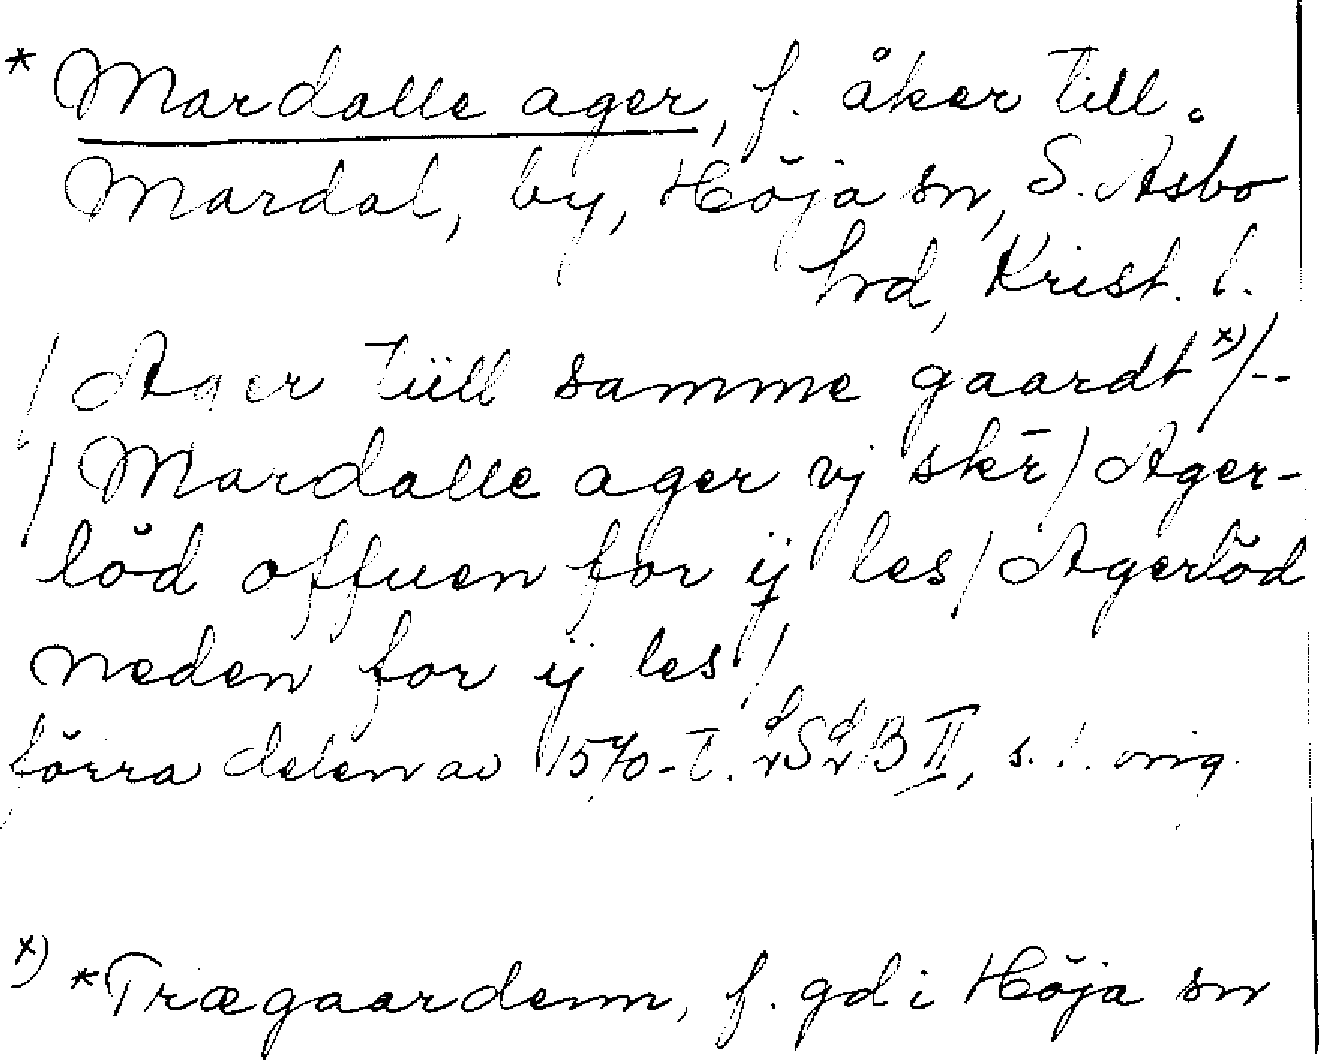 * Mardalle ager, f. åker till
Mardal, by, Höja sn, S. Åsbo
hrd, Krist. l.
/ Ager tiill samme gaardt x)/--
/ Mardalle ager vj skr̄ / Ager-
löd offuen for ij les / Agerlöd
neden for ij les /
förra delen av 1570-t. LSLB II, s. 1. orig.
x) *Trægaardenn, f. gd i Höja sn